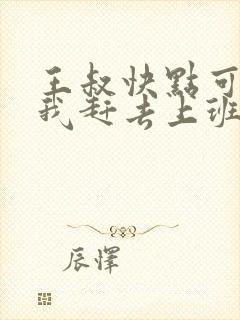 王叔快點可
我赶去上班
辰懌